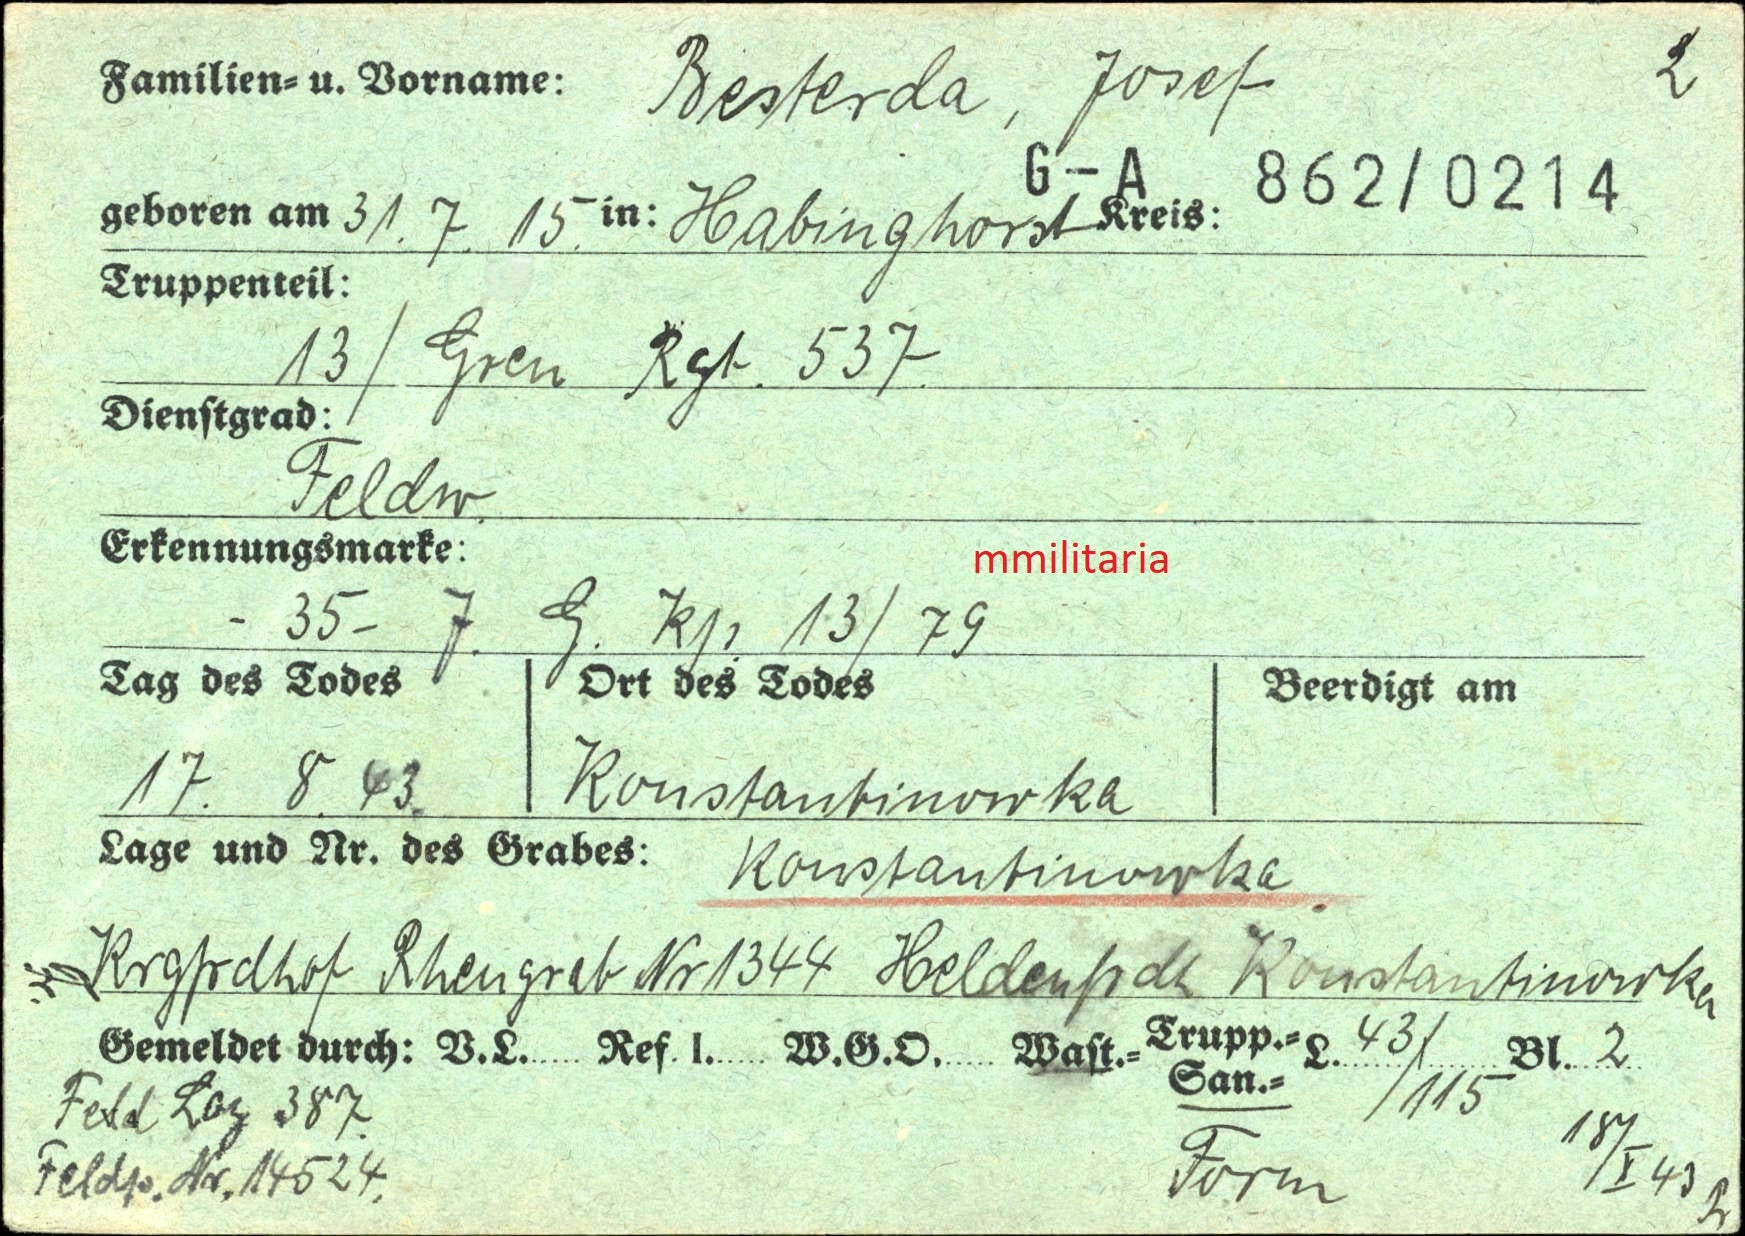 Familien- u. Vorname: Besterda, Josef 2
G-A 862/0214
geboren am 31. 7. 15. in: Habinghorst Kreis:
Truppenteil:
13/ Gren Rgt. 537.
Dienstgrad:
Feldw.
Erkennungsmarke:
mmilitaria
- 35 - J. G. Kp. 13/ 79
Tag des Todes Ort des Todes Beerdigt am
17. 8. 43. Konstantinowka
Lage und Nr. des Grabes: Konstantinowka
Krgfrdhof Rhengrab Nr 1344 Heldenfrdh Konstantinowka
Gemeldet durch: V.L...... Ref. I...... W.G.O...... Wast.= Trupp.= San.= L. 43/115 Bl. 2
Feld Laz 387.
Feldp. Nr. 14524.
Form